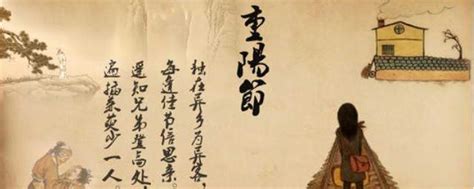 重陽節
独在异乡为异客，
每逢佳节倍思亲。
遥知兄弟登高处，
遍插茱萸少一人。